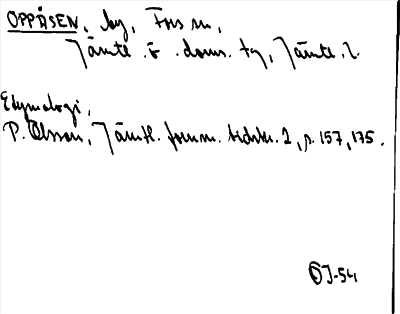 OPPÅSEN, by, Fors sn,
Jämtl. ö. doms. tg, Jämtl. l.
Etymologi,
P. Olsson, Jämtl. fornm. tidskr. 2, s. 157, 175.
OJ-54